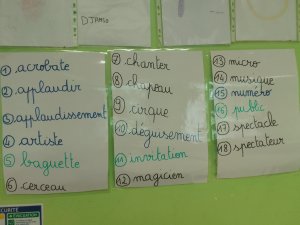 DJPMO
① acrobate
② applaudir
③ applaudissement
④ artiste
⑤ baguette
⑥ cerceau
⑦ chanter
⑧ chapeau
⑨ cirque
⑩ déguisement
⑪ invitation
⑫ magicien
⑬ micro
⑭ musique
⑮ numéro
⑯ public
⑰ spectacle
⑱ spectateur